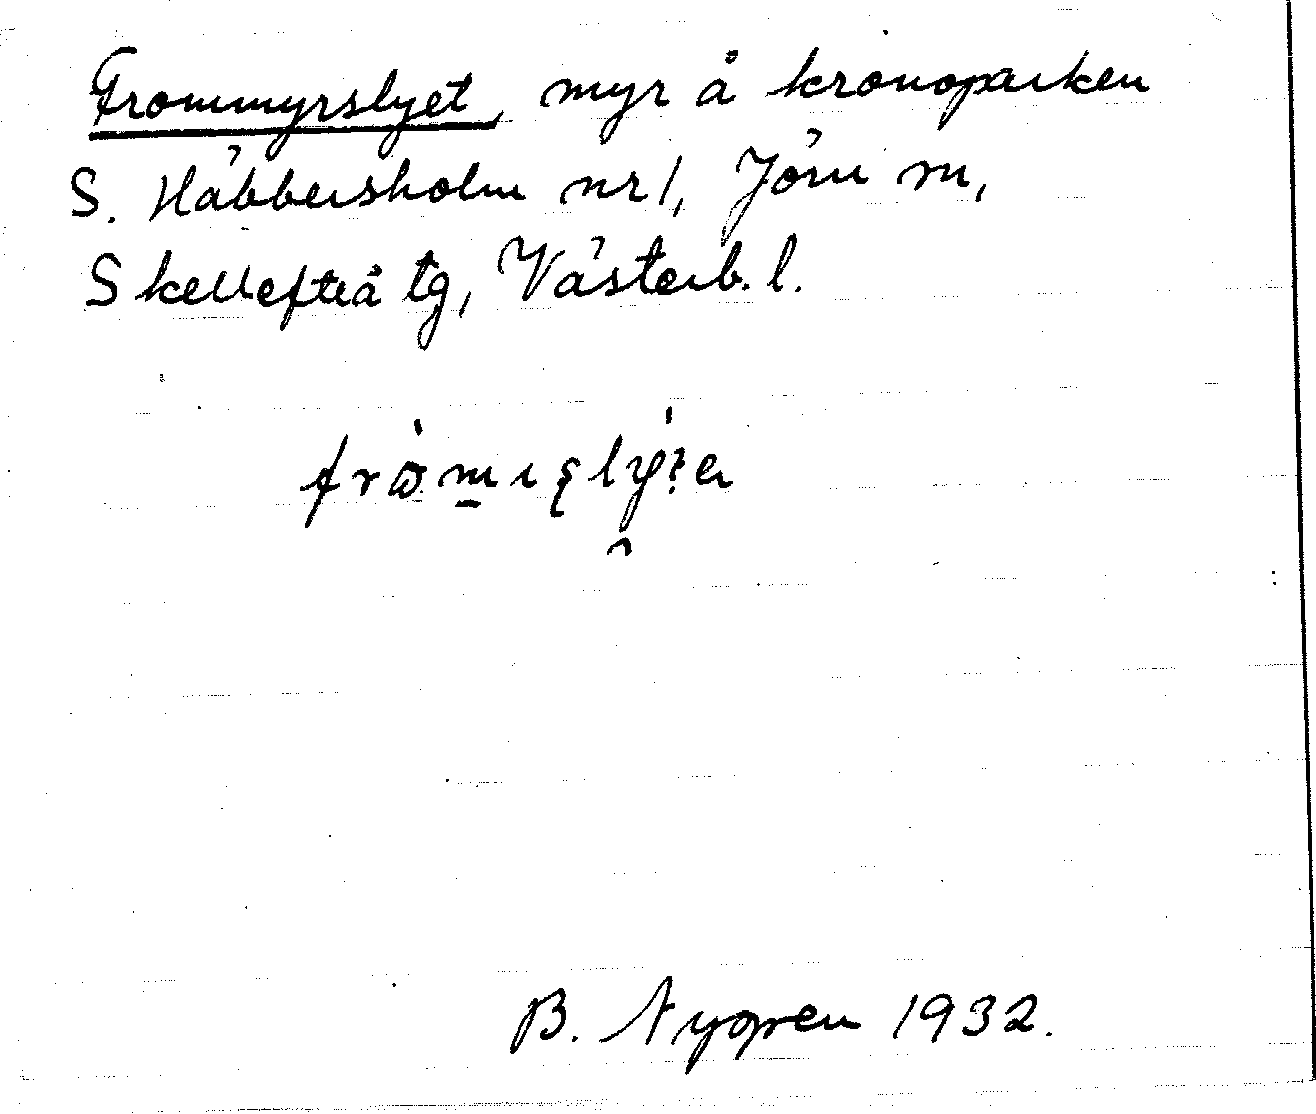 Frommyrslyet, myr å kronoparken
S. Häbbersholm nr 1, Jörn sn,
Skellefteå tg, Västerb. l.
B. Nygren 1932.